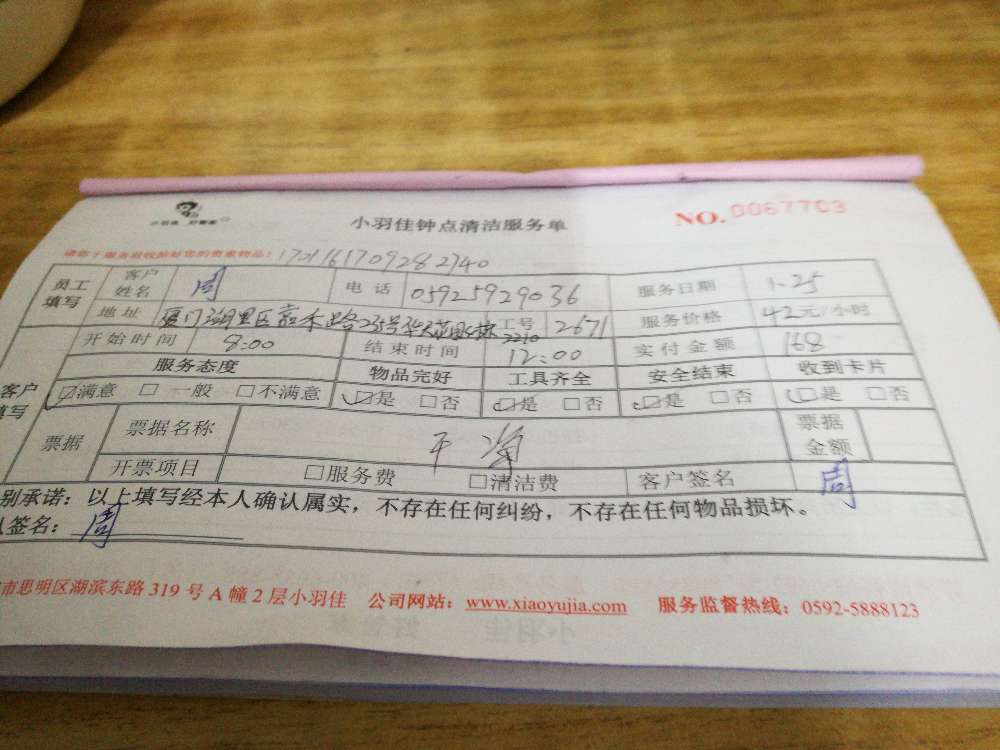 小羽佳 好管家
小羽佳钟点清洁服务单
NO. 0067703
请您于服务前收拾好您的贵重物品! 1701161709282740
员工填写 客户姓名 周 电话 05925929036 服务日期 1.25
地址 厦门湖里区 工号 2671 服务价格 42元/小时
2210
开始时间 8:00 结束时间 12:00 实付金额 168
客户填写 服务态度 物品完好 工具齐全 安全结束 收到卡片
☑满意 □一般 □不满意 ☑是 □否 ☑是 □否 ☑是 □否 ☑是 □否
票据 票据名称 干净 票据金额
开票项目 □服务费 □清洁费 客户签名 周
别承诺：以上填写经本人确认属实，不存在任何纠纷，不存在任何物品损坏。
人签名： 周
市思明区湖滨东路 319 号 A 幢 2 层小羽佳 公司网站：www.xiaoyujia.com 服务监督热线：0592-5888123